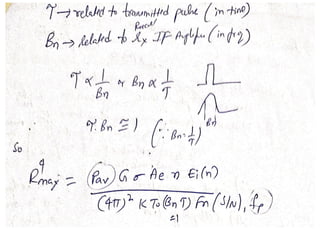 τ → related to transmitted pulse (in time)
Bn → related to Rx IF Amplifier (in frq)
τ ∝ 1/Bn or Bn ∝ 1/τ
τ.Bn ≅ 1 (∵ Bn = 1/τ)
Bn
So
R⁴max = (Pav) G σ Ae n Ei(n) / (4π)² K To (Bn τ) Fn (S/N)₁ fp
=1